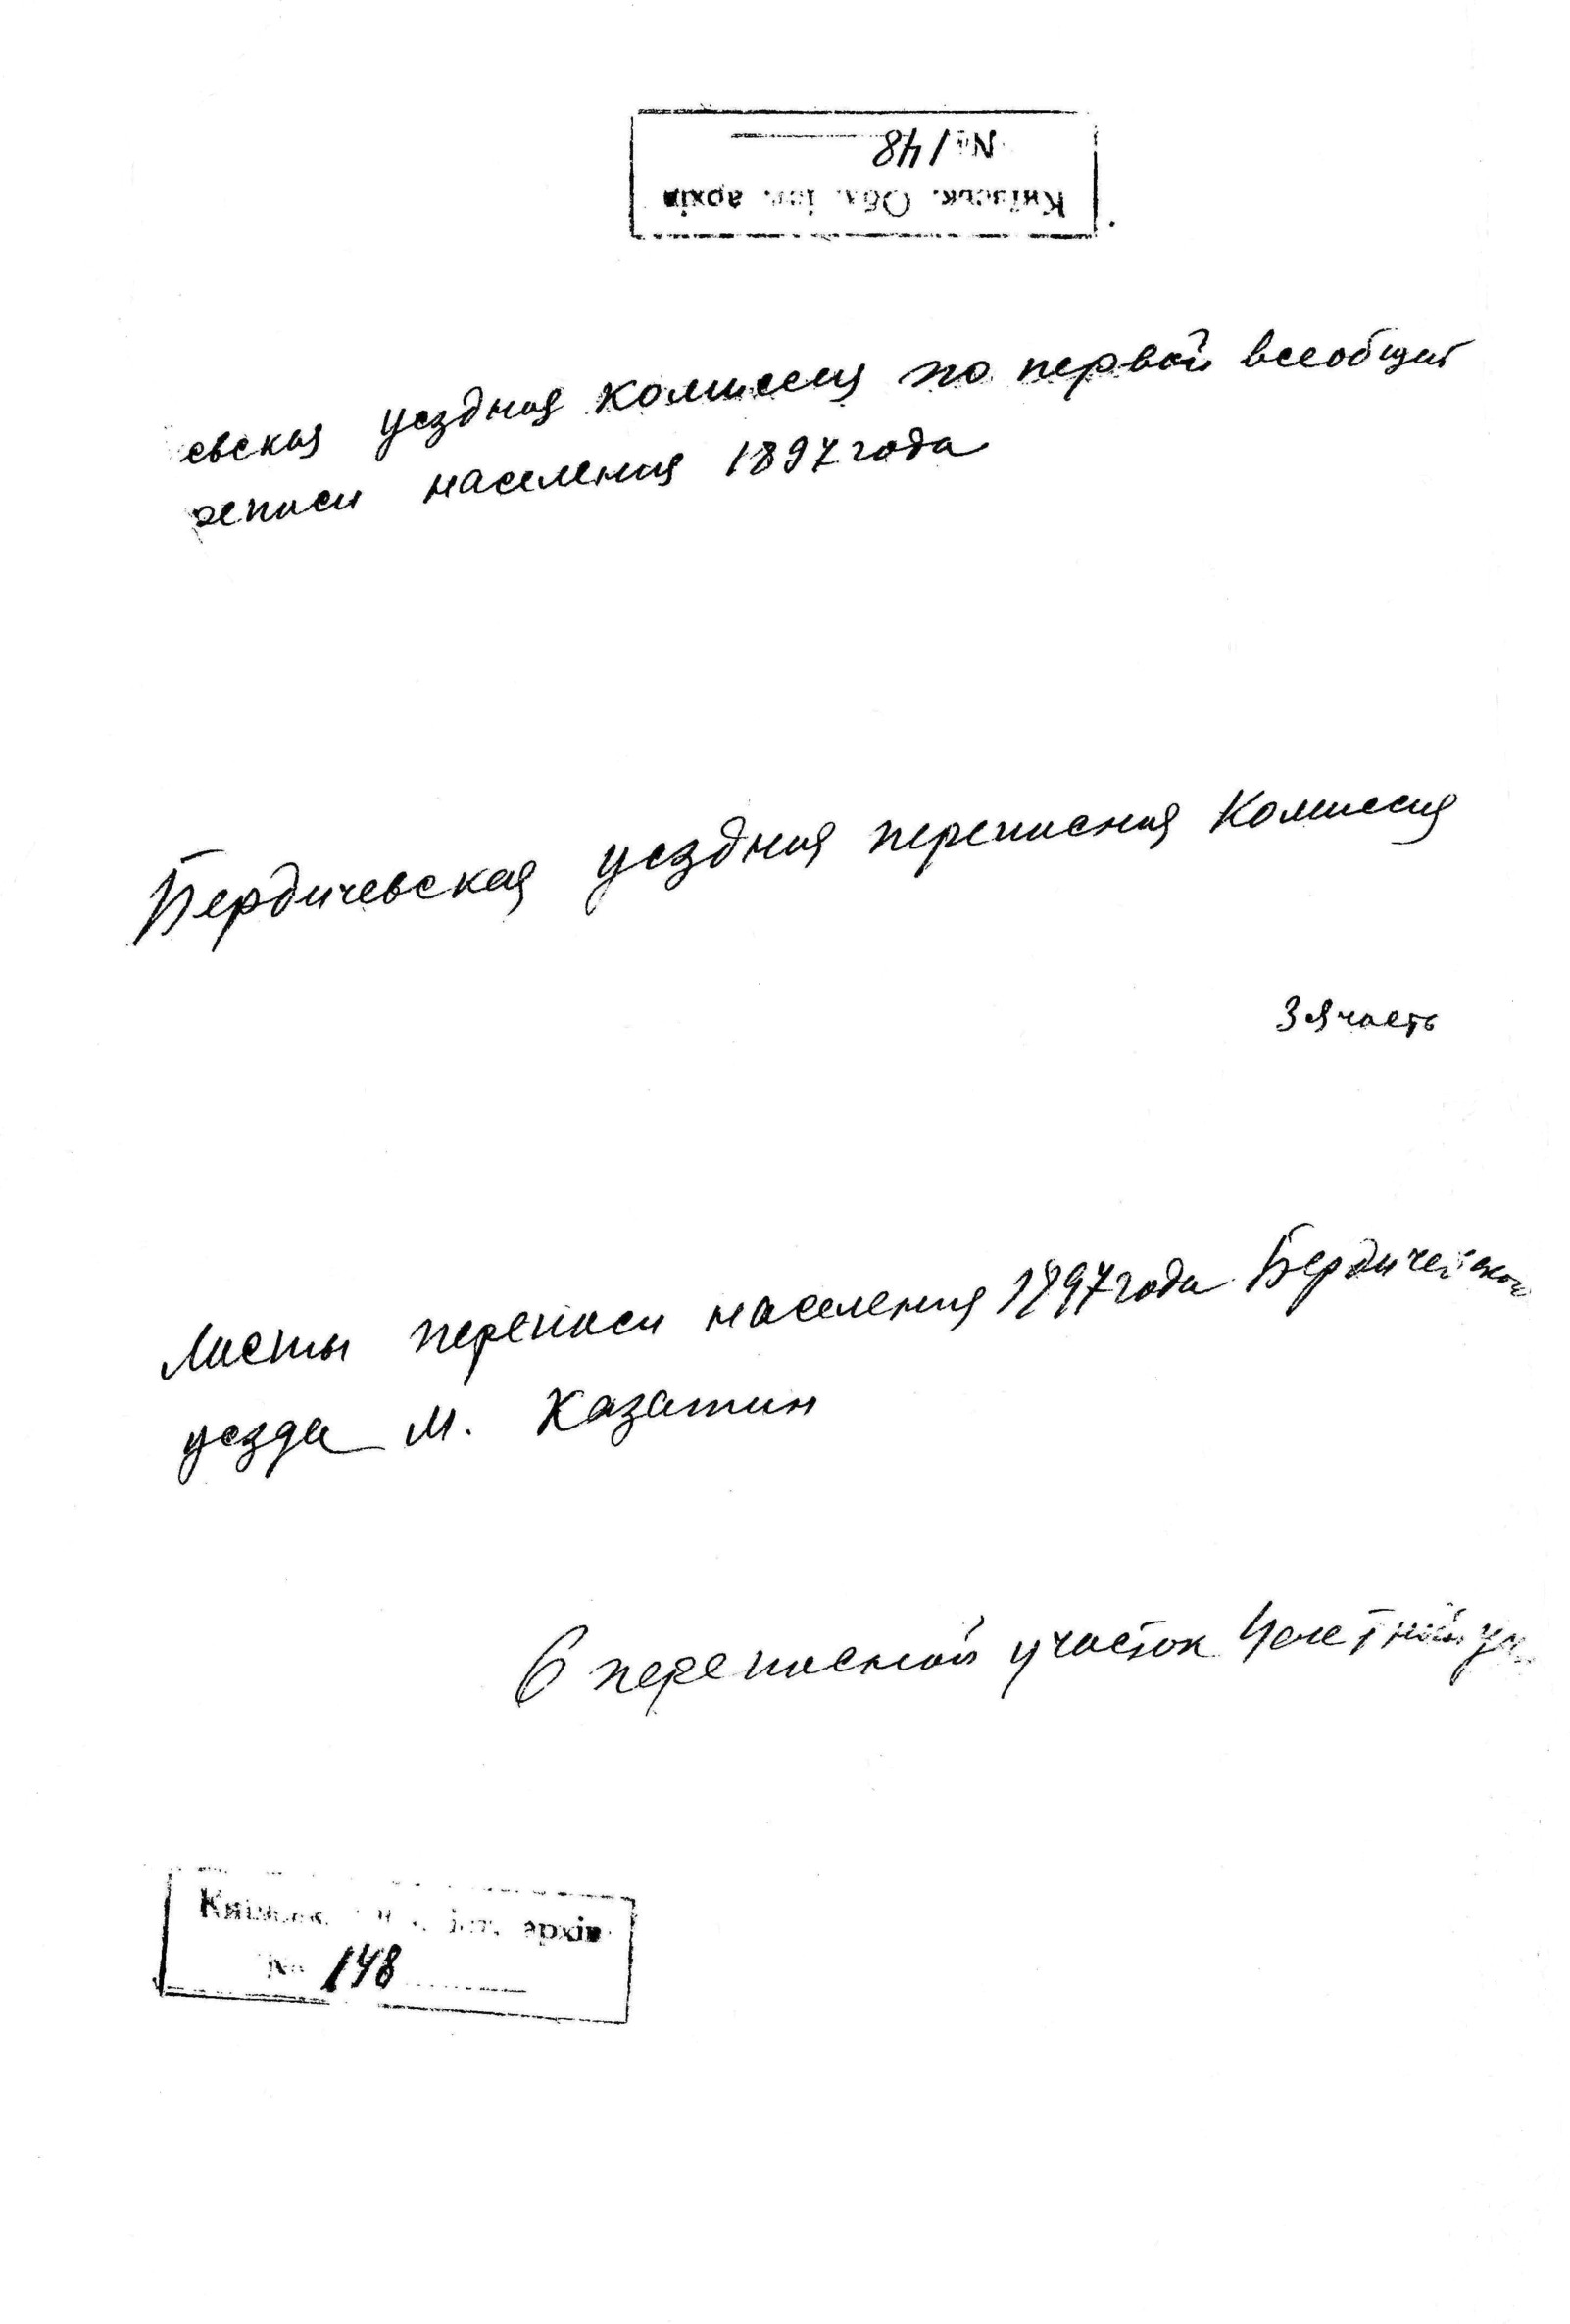 Київськ. Обл. іст. архів
№ 148
евская уездная комиссия по первой всеобщей
реписи населения 1897 года
Бердичевская уездная переписная Комиссия
3 я часть
Листы переписи населения 1897 года Бердичевского
уезда м. Казатин
6 переписной участок 4 счетный уч
Київськ. іст. архів
№ 148